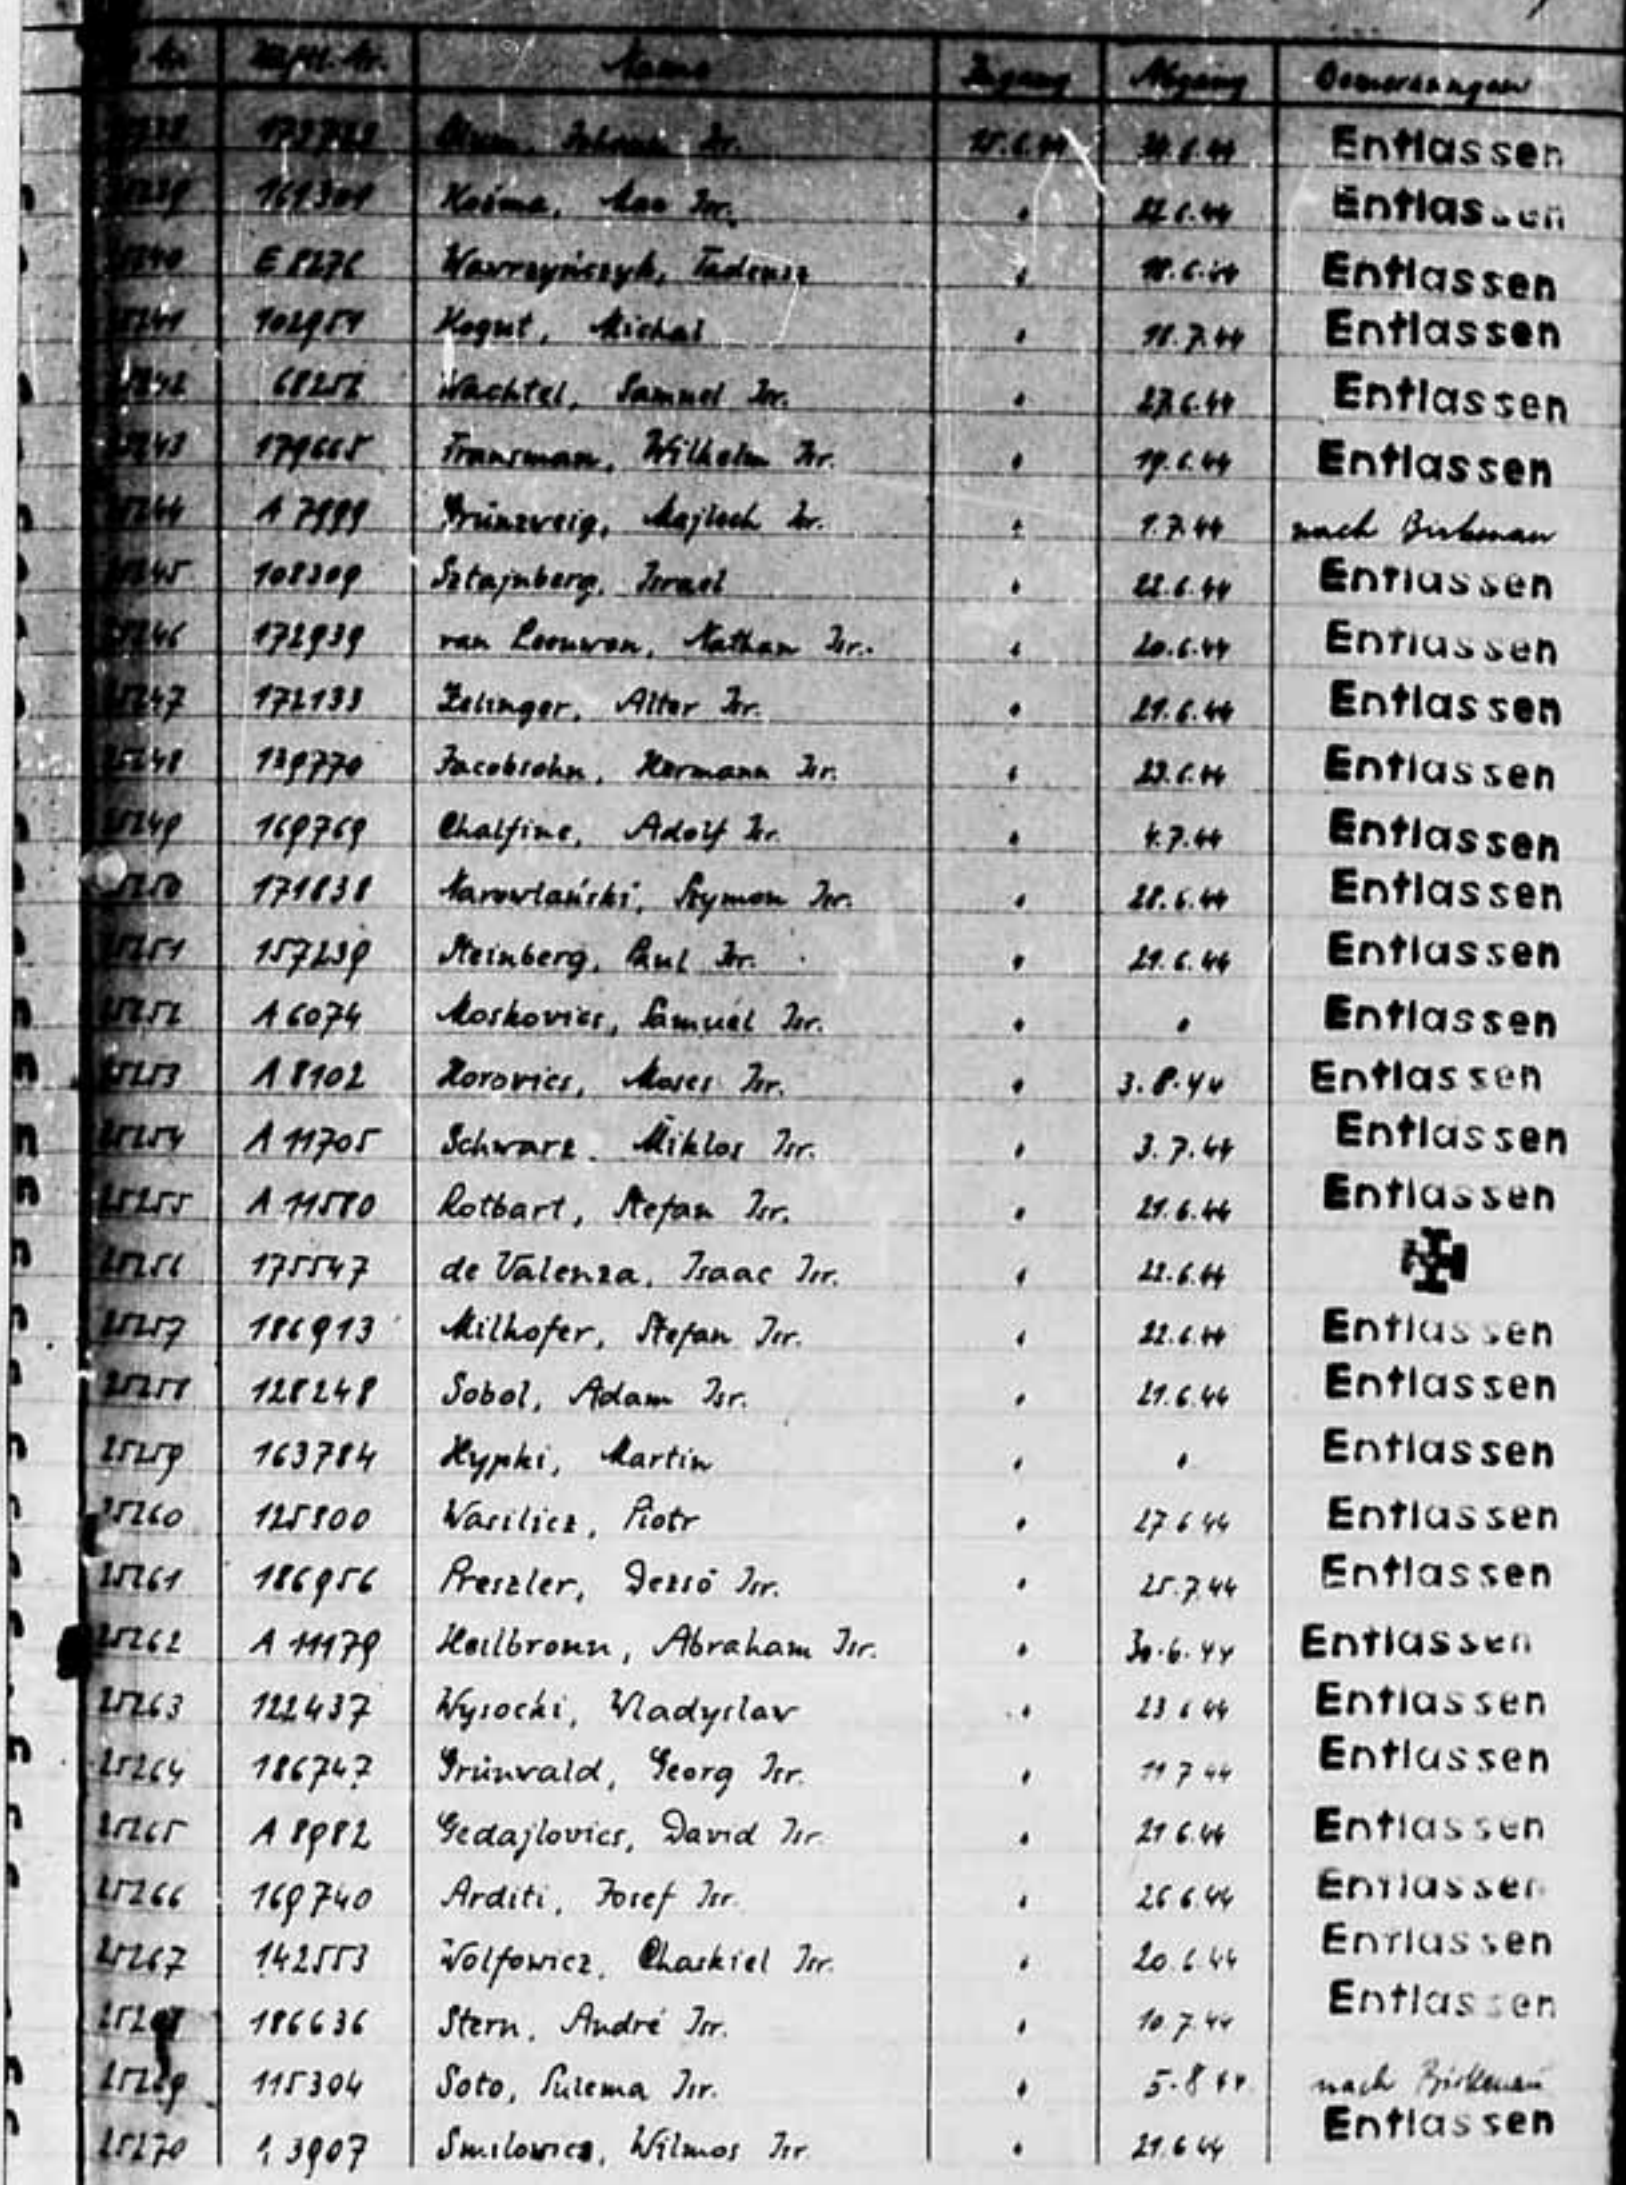 Nr. Häftl.-Nr. Name Zugang Abgang Bemerkungen
Isr. 15.6.44 Entlassen
Isr. 22.6.44 Entlassen
E 8276 Wawrzyńczyk, Tadeusz " 18.6.44 Entlassen
25241 102951 Kogut, Michał " 18.7.44 Entlassen
25242 68256 Wachtel, Samuel Isr. " 27.6.44 Entlassen
25243 179665 Fransman, Wilhelm Isr. " 19.6.44 Entlassen
25244 A 7999 Grünzweig, Majloch Isr. " 1.7.44 nach Birkenau
25245 108309 Sztajnberg, Israel " 22.6.44 Entlassen
25246 172939 van Leeuwen, Nathan Isr. " 20.6.44 Entlassen
25247 172133 Zelinger, Alter Isr. " 21.6.44 Entlassen
25248 139770 Jacobsohn, Hermann Isr. " 23.6.44 Entlassen
25249 169769 Chalfine, Adolf Isr. " 4.7.44 Entlassen
25250 171838 Narowlański, Szymon Isr. " 28.6.44 Entlassen
25251 157239 Steinberg, Paul Isr. " 21.6.44 Entlassen
25252 A 6074 Moskovics, Samuel Isr. " " Entlassen
25253 A 8102 Horovics, Moses Isr. " 3.8.44 Entlassen
25254 A 11705 Schwarz, Miklos Isr. " 3.7.44 Entlassen
25255 A 11580 Rotbart, Stefan Isr. " 21.6.44 Entlassen
25256 175547 de Valenza, Isaac Isr. " 22.6.44
25257 186913 Milhofer, Stefan Isr. " 22.6.44 Entlassen
25258 128248 Sobol, Adam Isr. " 21.6.44 Entlassen
25259 163784 Hypki, Martin " " Entlassen
25260 125800 Wasilicz, Piotr " 27.6.44 Entlassen
25261 186956 Preszler, Dezsö Isr. " 25.7.44 Entlassen
25262 A 11179 Heilbronn, Abraham Isr. " 30.6.44 Entlassen
25263 122437 Wysocki, Wladyslav " 23.6.44 Entlassen
25264 186747 Grünvald, Georg Isr. " 11.7.44 Entlassen
25265 A 8982 Gedajlovics, David Isr. " 21.6.44 Entlassen
25266 169740 Arditi, Josef Isr. " 26.6.44 Entlassen
25267 142553 Wolfowicz, Chaskiel Isr. " 20.6.44 Entlassen
25268 186636 Stern, André Isr. " 10.7.44 Entlassen
25269 115304 Soto, Sulema Isr. " 5.8.44 nach Birkenau
25270 Smilowics, Wilmos Isr. " 21.6.44 Entlassen